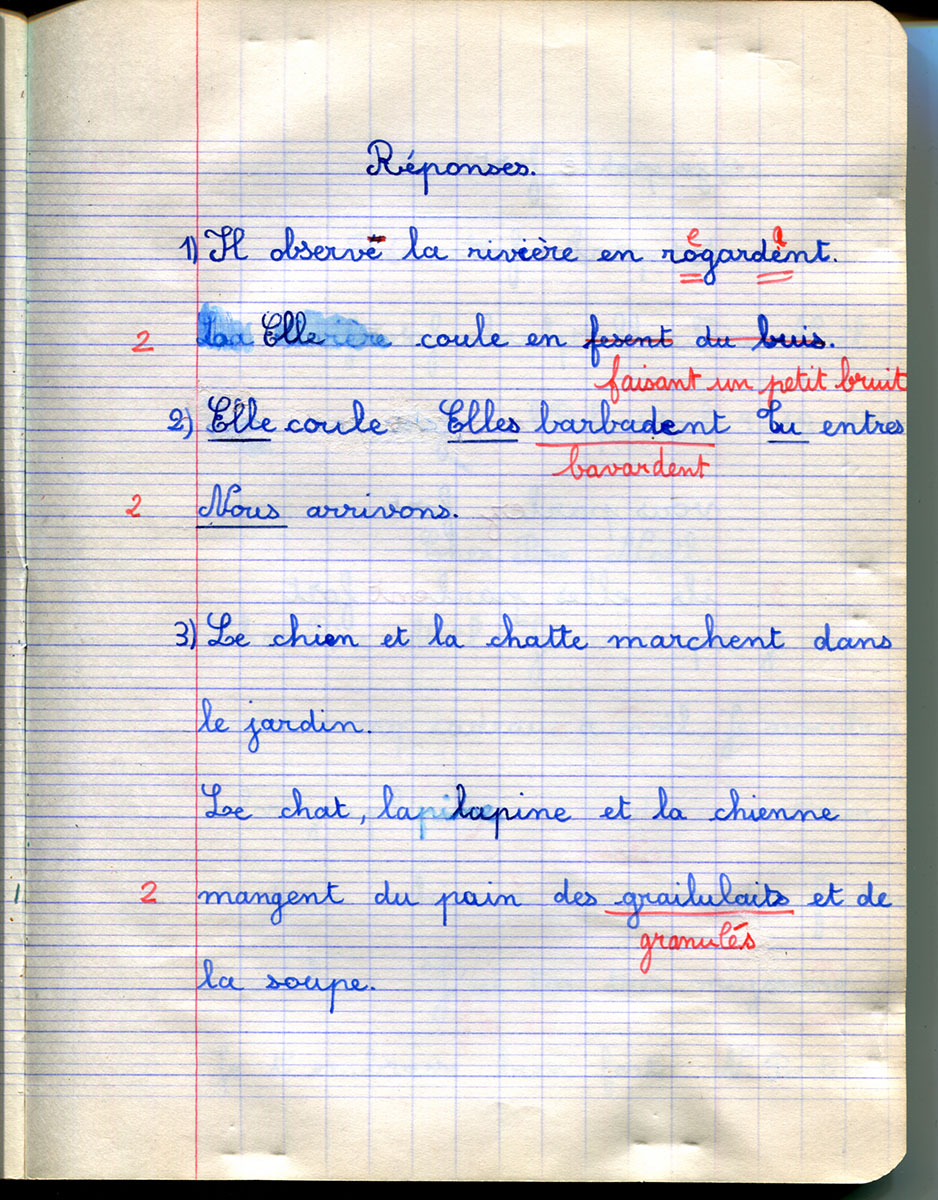 Réponses.
e a
1) Il observe la rivière en rogardent.
2 Elle coule en fesent du buis.
faisant un petit bruit
2) Elle coule Elles barbadent Tu entres
bavardent
2 Nous arrivons.
3) Le chien et la chatte marchent dans
le jardin.
Le chat, la lapine et la chienne
2 mangent du pain des grailulaits et de
granulés
la soupe.